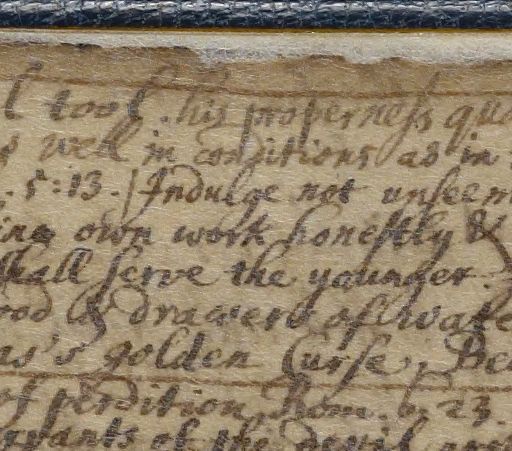 l tool. his properness qua
s well in conditions as in
. 5:13. / Indulge not unseem
ing own work honestly &
shall serve the younger.
ood & drawers of wate
as's golden Curse, Be
of perdition, Rom. 6. 23.
ervants of the devil